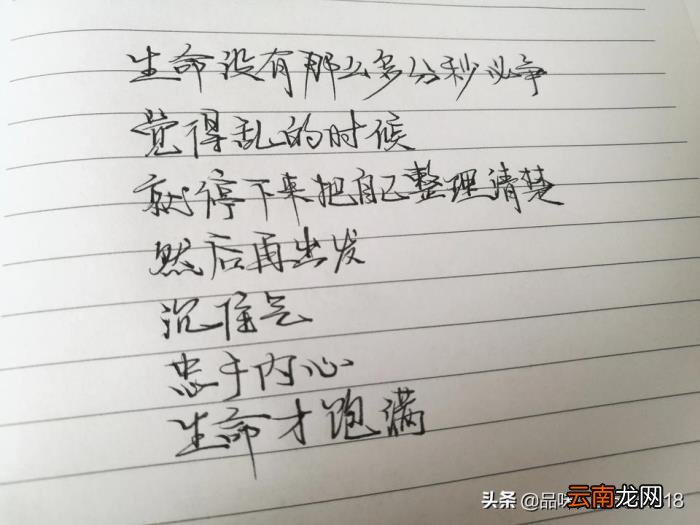 生命没有那么多分秒必争
觉得乱的时候
就停下来把自己整理清楚
然后再出发
沉住气
忠于内心
生命才跑满
头条 @品味
云南龙网
18